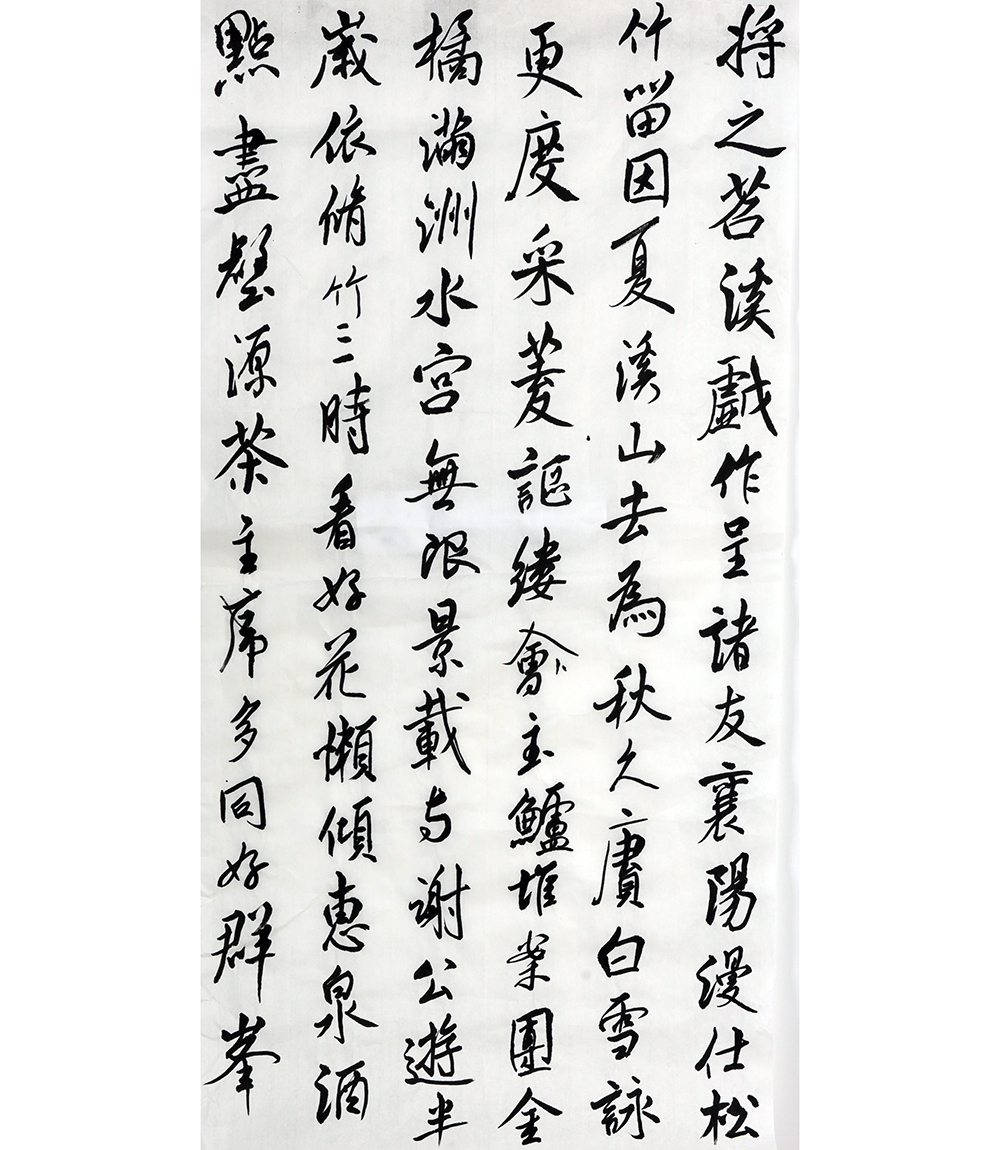 將之苕溪戲作呈諸友襄陽漫仕松
竹留因夏溪山去為秋久賡白雪詠
更度采菱謳縷會主鱸堆案團金
橘滿洲水宮無限景載与謝公遊半
歲依脩竹三時看好花懶傾惠泉酒
點盡壑源茶主席多同好群峯